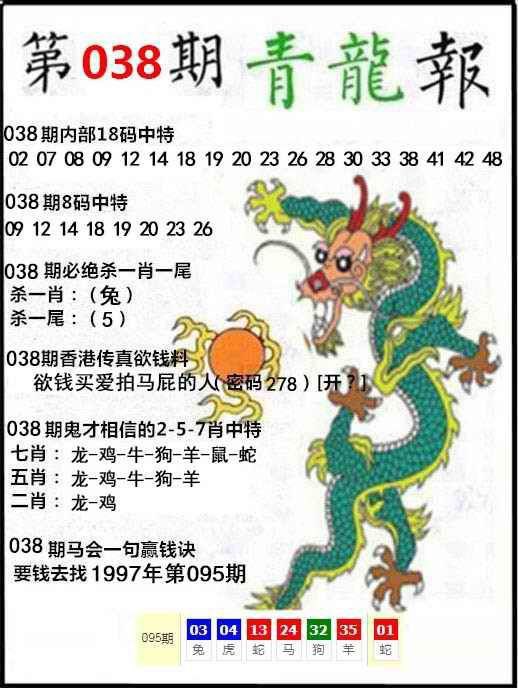 第038期 青龍報
038期内部18码中特
02 07 08 09 12 14 18 19 20 23 26 28 30 33 38 41 42 48
038 期8码中特
09 12 14 18 19 20 23 26
038 期必绝杀一肖一尾
杀一肖：（兔）
杀一尾：（5）
038期香港传真欲钱料
欲钱买爱拍马屁的人（密码278）[开？]
038 期鬼才相信的2-5-7肖中特
七肖：龙-鸡-牛-狗-羊-鼠-蛇
五肖：龙-鸡-牛-狗-羊
二肖：龙-鸡
038 期马会一句赢钱诀
要钱去找1997年第095期
095期 03 04 13 24 32 35 01
兔 虎 蛇 马 狗 羊 蛇